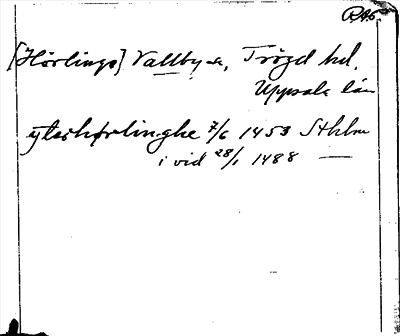 RA6.
[Hörlinge] Vallby sn, Trögd hd.
Uppsala län
yterhørlinghe 7/6 1453 Sthlm
i vid 28/1 1488 —